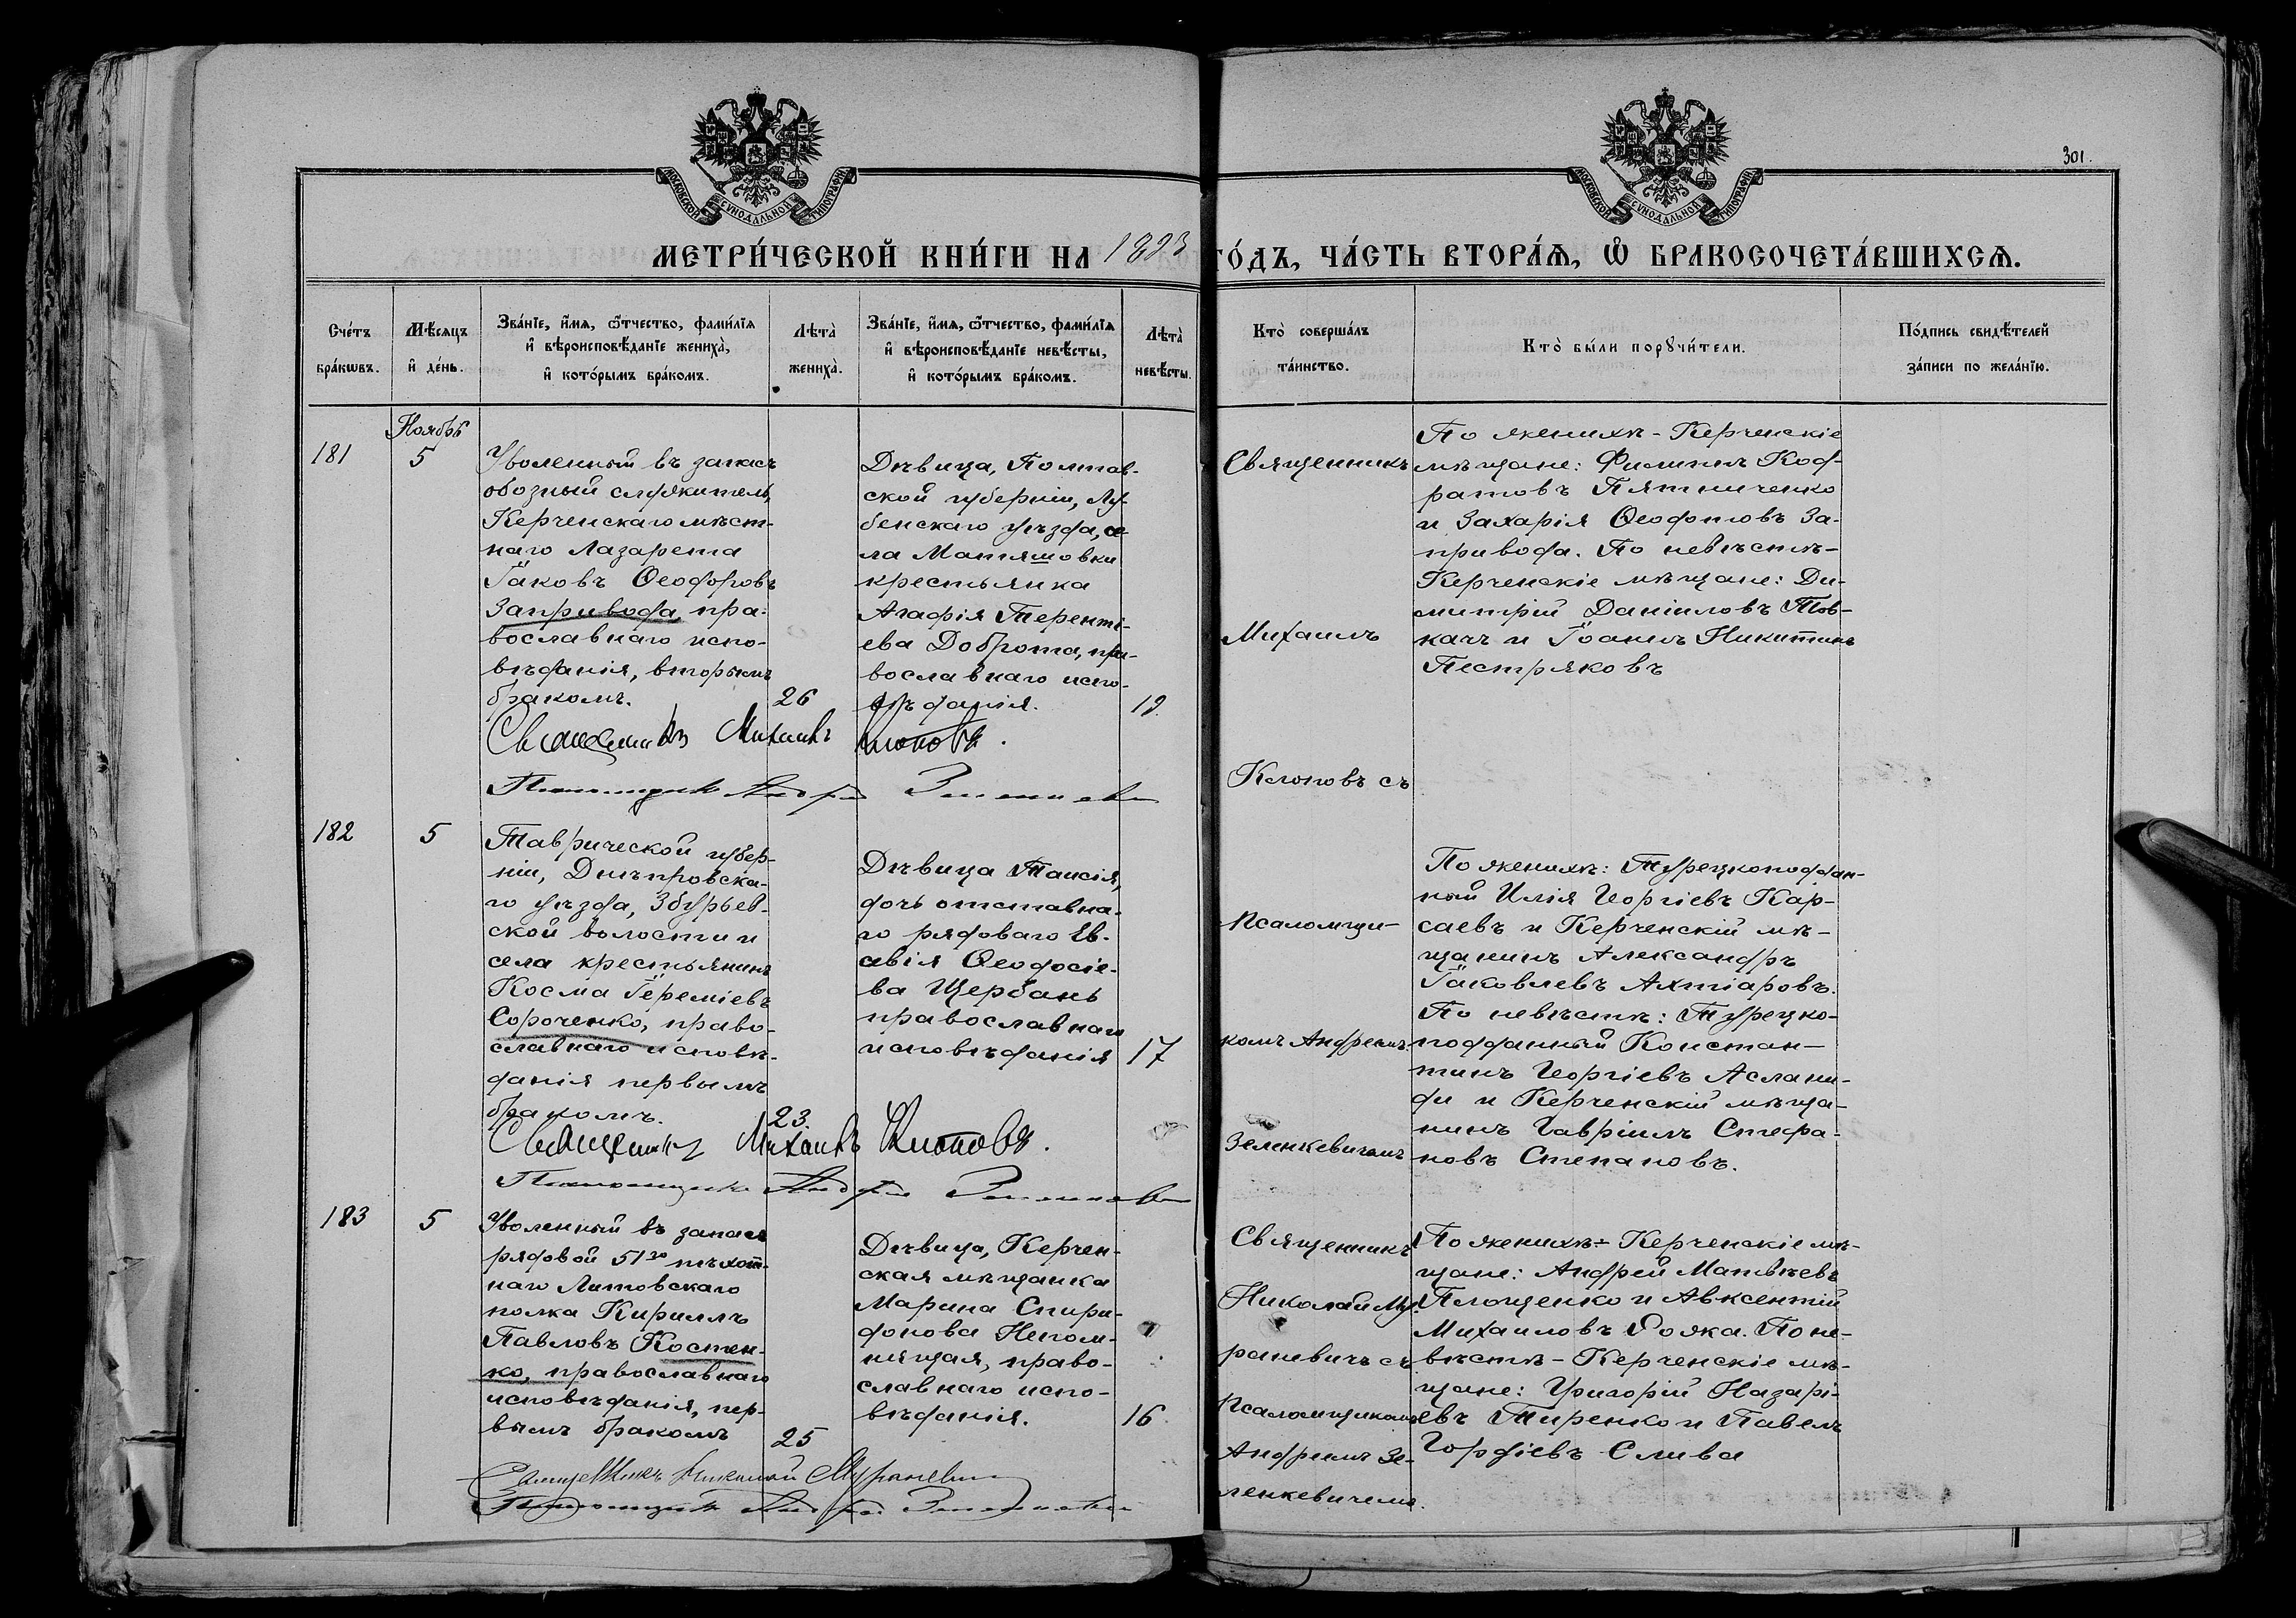 МОСКОВСКОЙ СУНОДАЛЬНОЙ ТИПОГРАФІИ
МОСКОВСКОЙ СУНОДАЛЬНОЙ ТИПОГРАФІИ
301.
МЕТРИ́ЧЕСКОЙ КНИ́ГИ НА 1893 ГО́ДЪ, ЧА́СТЬ ВТОРА́Ѧ, Ѡ҆ БРАКОСОЧЕТА́ВШИХСѦ.
Сче́тъ
бра́кѡвъ.
Мѣ́сяцъ
и҆ де́нь.
Зва́нїе, и҆́мѧ, ѻ҆́тчество, фами́лїѧ
и҆ вѣроисповѣ́данїе жениха̀,
и҆ кото́рымъ бра́комъ.
Лѣ́та
жениха̀.
Зва́нїе, и҆́мѧ, ѻ҆́тчество, фами́лїѧ
и҆ вѣроисповѣ́данїе невѣ́сты,
и҆ кото́рымъ бра́комъ.
Лѣ́та
невѣ́сты.
Кто̀ соверша́лъ
та́инство.
Кто̀ бы́ли порꙋчи́тели.
По́дпись свидѣ́телей
за́писи по жела́нїю.
Ноябрь
181
5
Уволенный въ запасъ
обозный служитель
Керченскаго мѣст-
наго Лазарета
Іаковъ Ѳеодоровъ
Запривода, пра-
вославнаго испо-
вѣданія, вторымъ
бракомъ.
26
Дѣвица, Полтав-
ской губерніи, Лу-
бенскаго уѣзда, се
ла Матяшовки
крестьянка
Агафія Терентi-
ева Доброта, пра-
вославнаго испо-
вѣданія.
19.
Священникъ
Михаилъ
Клоповъ съ
По женихѣ - Керченскіе
мѣщане: Филиппъ Код-
ратовъ Пятниченко
и Захарія Ѳеодотовъ За-
привода. По невѣстѣ -
Керченскіе мѣщане: Ди-
митрій Даніиловъ Тов-
качъ и Іоаннъ Никитинъ
Пестряковъ
Священникъ Михаилъ Клоповъ.
Псаломщикъ Андрей
182
5
Таврической губер-
ніи, Днѣпровска-
го уѣзда, Збурьев-
ской волости и
села крестьянинъ
Косма Іереміевъ
Сороченко, право-
славнаго исповѣ-
данія первымъ
бракомъ.
23.
Дѣвица Таисія,
дочь отставна-
го рядоваго Ев-
севія Ѳеодосіе-
ва Щербань
православнаго
исповѣданія
17
Псаломщи-
комъ Андреемъ
Зеленкевичемъ
По женихѣ: Турецкоподдан-
ный Илія Георгіевъ Кар-
саевъ и Керченскій мѣ-
щанинъ Александръ
Іаковлевъ Ахтіаровъ.
По невѣстѣ: Турецко-
подданный Констан-
тинъ Георгіевъ Аслани-
ди и Керченскій мѣща-
нинъ Гавріилъ Стефа-
новъ Степановъ.
Священникъ Михаилъ Клоповъ.
Псаломщикъ Андрей
183
5
Уволенный въ запасъ
рядовой 51го пѣхот-
наго Литовскаго
полка Кириллъ
Павловъ Костен-
ко, православнаго
исповѣданія, пер-
вымъ бракомъ
25
Дѣвица, Керчен-
ская мѣщанка
Марина Спири-
донова Непом-
нящая, право-
славнаго испо-
вѣданія.
16
Священникъ
Николай Му-
раневичъ съ
Псаломщикомъ
Андреемъ Зе-
ленкевичемъ.
По женихѣ - Керченскіе мѣ-
щане: Андрей Матвѣевъ
Площенко и Авксентій
Михаиловъ Рожа. По не-
вѣстѣ - Керченскіе мѣ-
щане: Григорій Назарі-
евъ Тиренко и Павелъ
Гордіевъ Слива
Священникъ Николай Мураневичъ
Псаломщикъ Андрей